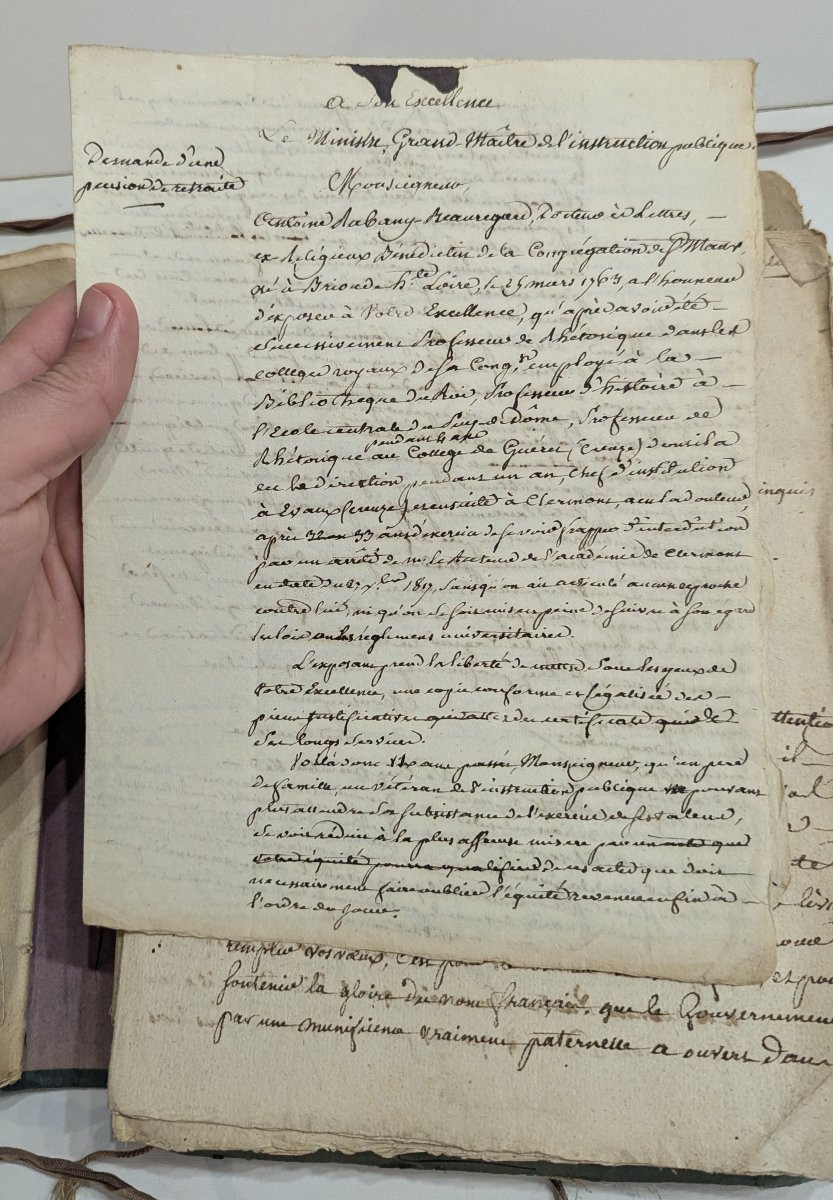 a son Excellence
Le Ministre, Grand-Maître de l'instruction publique.
Demande d'une
pension de retraite
Monseigneur,
Antoine Rabany-Beauregard, Docteur ès Lettres, —
ex Religieux Bénédictin de la Congrégation de St Maur,
né à Brioude hte Loire, le 25 mars 1763, a l'honneur
d'exposer à Votre Excellence, qu'après avoir été —
successivement Professeur de Rhétorique dans les
colleges royaux de sa Congon, employé à la —
Bibliothèque du Roi, Professeur d'histoire à —
l'Ecole centrale du Puy-de-Dôme, Professeur de
pendant
Rhétorique au College de Guéret (Creuze) dont il a
eu la direction pendant un an, Chef d'institution
à Evaux (creuze) et ensuite à Clermont, a eu la douleur
après 32 ou 33 ans d'exercice de se voir frappé d'interdiction
par un arrêté de mr le Recteur de l'académie de Clermont
en date du 27 xbre 1817, sans qu'on ait articulé aucun reproche
contre lui, ni qu'on se soit mis en peine de suivre à son egard
les loix et les règlemens universitaires.
L'exposant prend la liberté de mettre sous les yeux de
Votre Excellence, une copie conforme et légalisée des —
pieces justificatives du certificat de
ses longs services.
Voilà donc ans passés, Monseigneur, qu'un pere
de famille, un vétéran de l'instruction publique ne pouvant
plus attendre sa subsistance de l'exercice de ses talens,
se voit réduit à la plus affreuse misere par un acte que
votre équité pourra qualifier, de ces actes que doit
necessairement faire oublier l'équité revenue enfin à —
l'ordre du jour.
inquis
ttentio
remplir vos vœux, c'est pour
soutenir la gloire du nom français, que le Gouvernement
par une munificence vraiment paternelle a ouvert dans